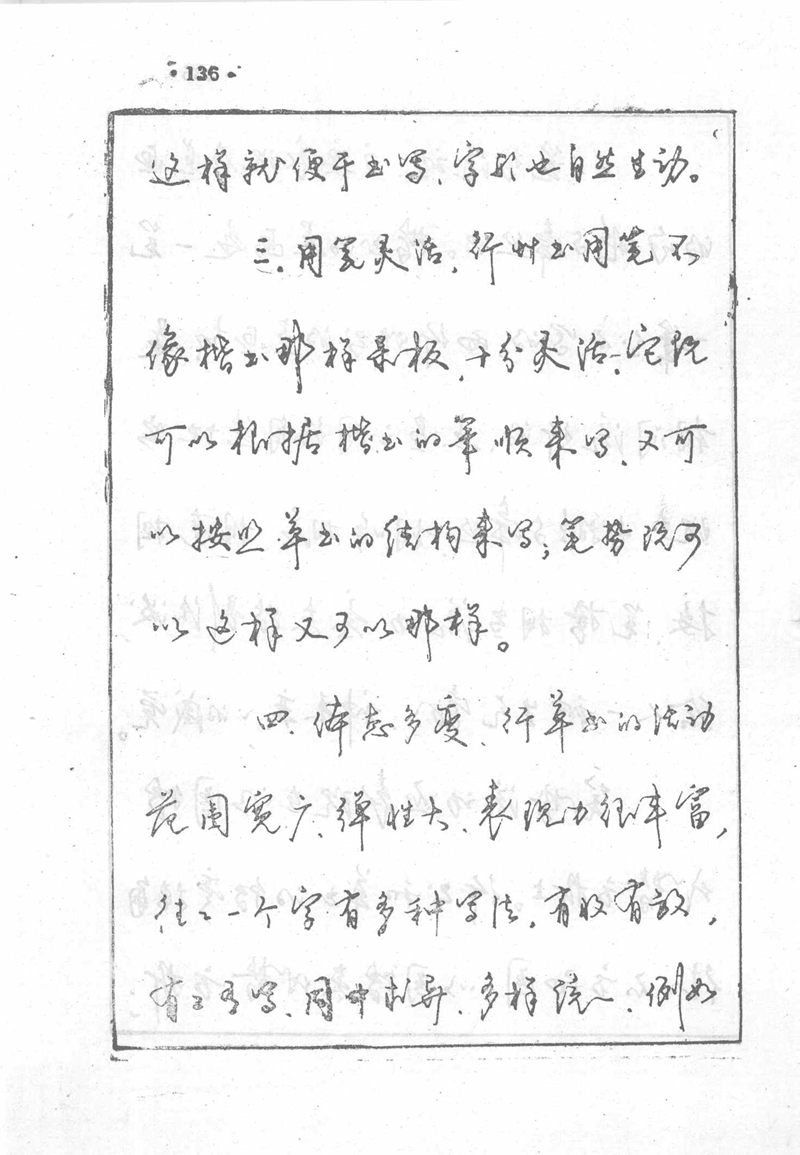 ·136·
这样就便于书写、字形也自然生动。
三、用笔灵活，行草书用笔不
像楷书那样呆板，十分灵活，它既
可以根据楷书的笔顺来写、又可
以按照草书的结构来写；笔势既可
以这样又可以那样。
四、体态多变、行草书的活动
范围宽广、弹性大、表现力很丰富，
往往一个字有多种写法，有收有放，
写、同中求异、多样统一、例如